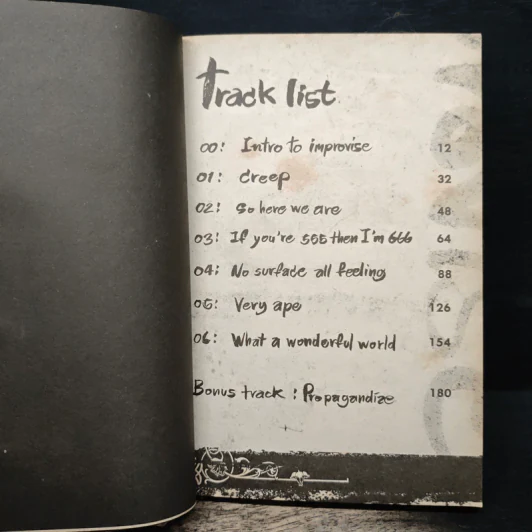 Track list
00: Intro to improvise 12
01: creep 32
02: So here we are 48
03: If you're 555 then I'm 666 64
04: No surface all feeling 88
05: Very ape 126
06: What a wonderful world 154
Bonus track : Propagandize 180